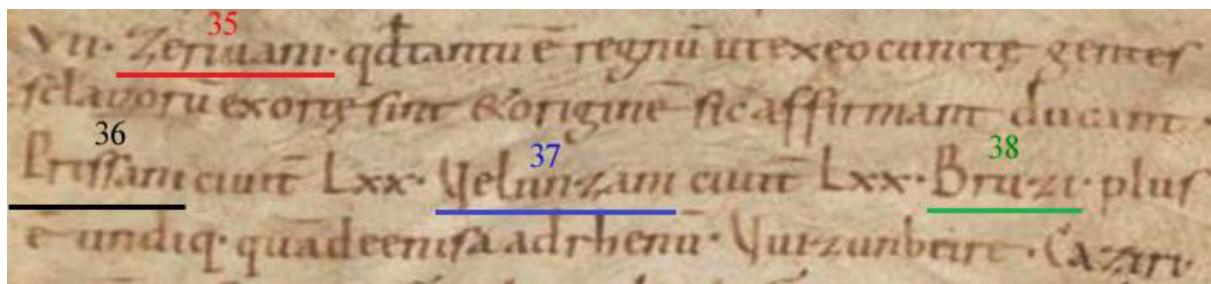 35
vii · Zeriuani · qd̄ tantū ē regnū ut ex eo cunctę gentes
sclauorū exortę sint & originē sic affirmant ducant ·
36 37 38
Prissani ciuit̄ Lxx · Velunzani ciuit̄ Lxx · Bruzi · plus
ē undiq · quā de enisa ad rhenū · Vuizunbeire · Caziri ·